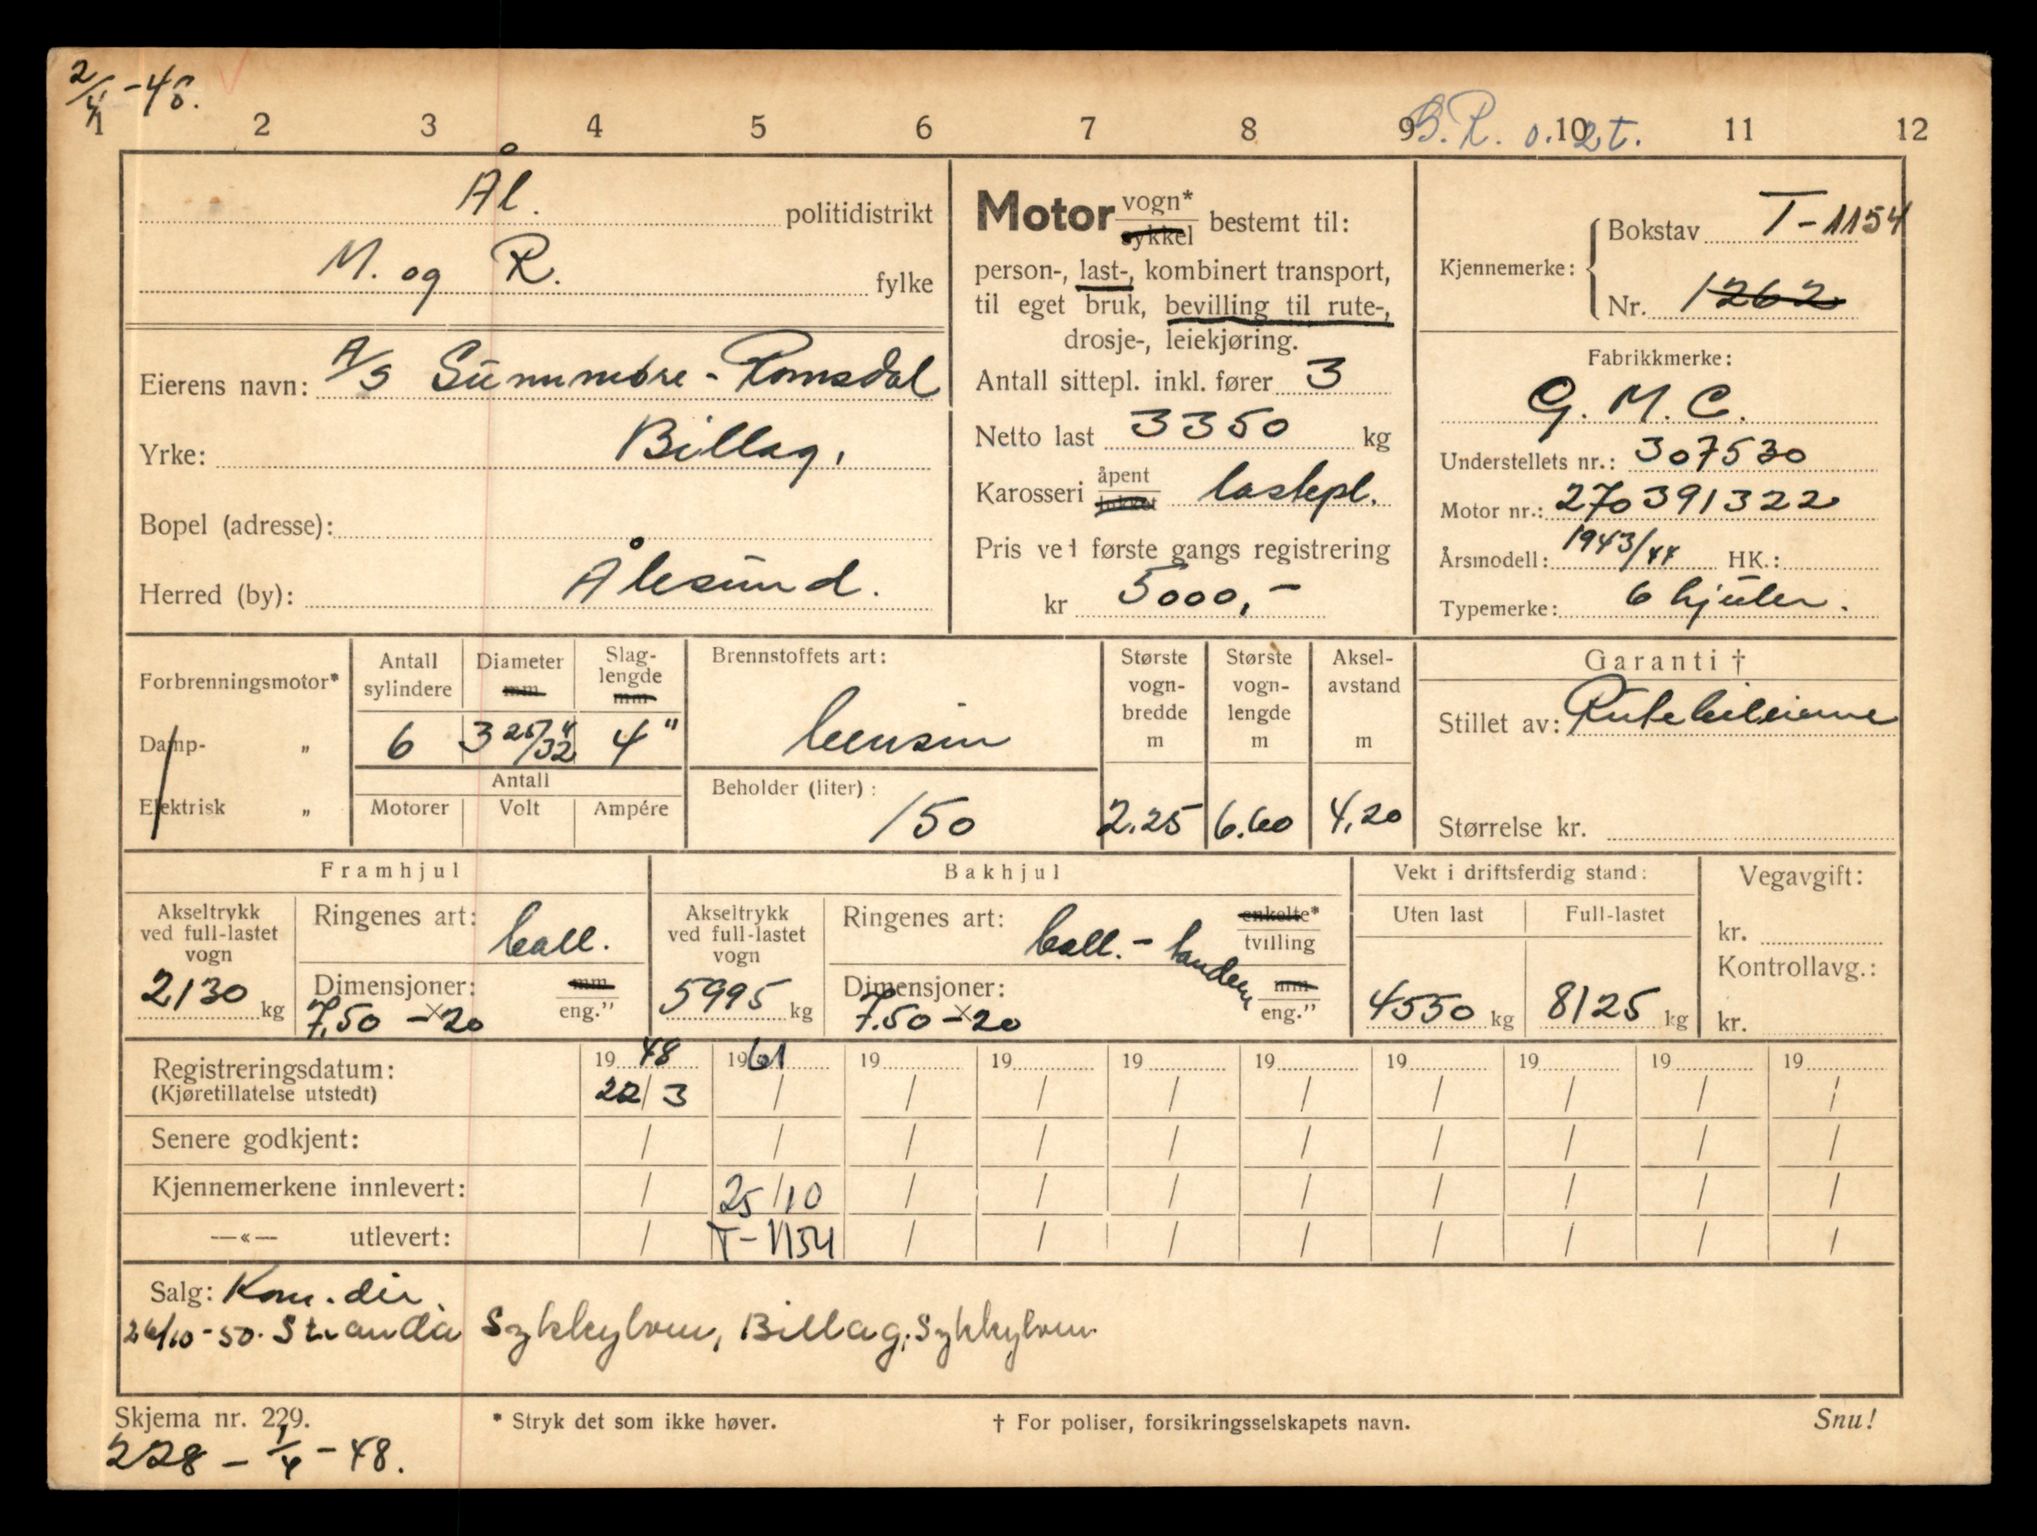 2/4 - 48.
1 2 3 4 5 6 7 8 9 10 11 12
Ål. politidistrikt
M. og R. fylke
Eierens navn: A/S Sunnmöre - Romsdal
Yrke: Billag,
Bopel (adresse):
Herred (by): Ålesund.
Motor vogn* sykkel bestemt til:
person-, last-, kombinert transport,
til eget bruk, bevilling til rute-,
drosje-, leiekjøring.
Antall sittepl. inkl. fører 3
Netto last 3350 kg
Karosseri åpent lukket lastepl.
Pris ved første gangs registrering
kr 5000,-
Kjennemerke: Bokstav T-1154
Nr. 1262
Fabrikkmerke:
G. M. C.
Understellets nr.: 307530
Motor nr.: 270391322
Årsmodell: 1943/44 HK.:
Typemerke: 6 hjuler.
Forbrenningsmotor*
Damp- „
Elektrisk „
Antall sylindere 6
Diameter mm 3 25/32"
Slag-lengde mm 4"
Antall
Motorer Volt Ampére
Brennstoffets art:
bensin
Beholder (liter):
150
Største vogn-bredde m 2.25
Største vogn-lengde m 6.60
Aksel-avstand m 4,20
Garanti †
Stillet av: Rutebileierne
Størrelse kr.
Framhjul
Akseltrykk ved full-lastet vogn 2130 kg
Ringenes art: ball.
Dimensjoner: mm eng."
7,50 - × 20
Bakhjul
Akseltrykk ved full-lastet vogn 5995 kg
Ringenes art: ball. - tandem enkelte* tvilling
Dimensjoner: mm eng."
7.50 - × 20
Vekt i driftsferdig stand:
Uten last Full-lastet
4550 kg 8125 kg
Vegavgift:
kr.
Kontrollavg.:
kr.
Registreringsdatum: 1948 1961 19 19 19 19 19 19 19 19
(Kjøretillatelse utstedt) 22/3 / / / / / / / / /
Senere godkjent: / / / / / / / / / /
Kjennemerkene innlevert: / 25/10 / / / / / / / /
—«— utlevert: / T-1154 / / / / / / / /
Salg: Kom. dir.
26/10-50. Stranda Sykkylven, Billag, Sykkylven
Skjema nr. 229.
* Stryk det som ikke høver.
† For poliser, forsikringsselskapets navn.
Snu!
228 - 1/4 - 48.